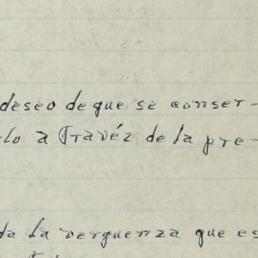 deseo de que se conser-
lo a Travéz de la pre-
da la verguenza que es